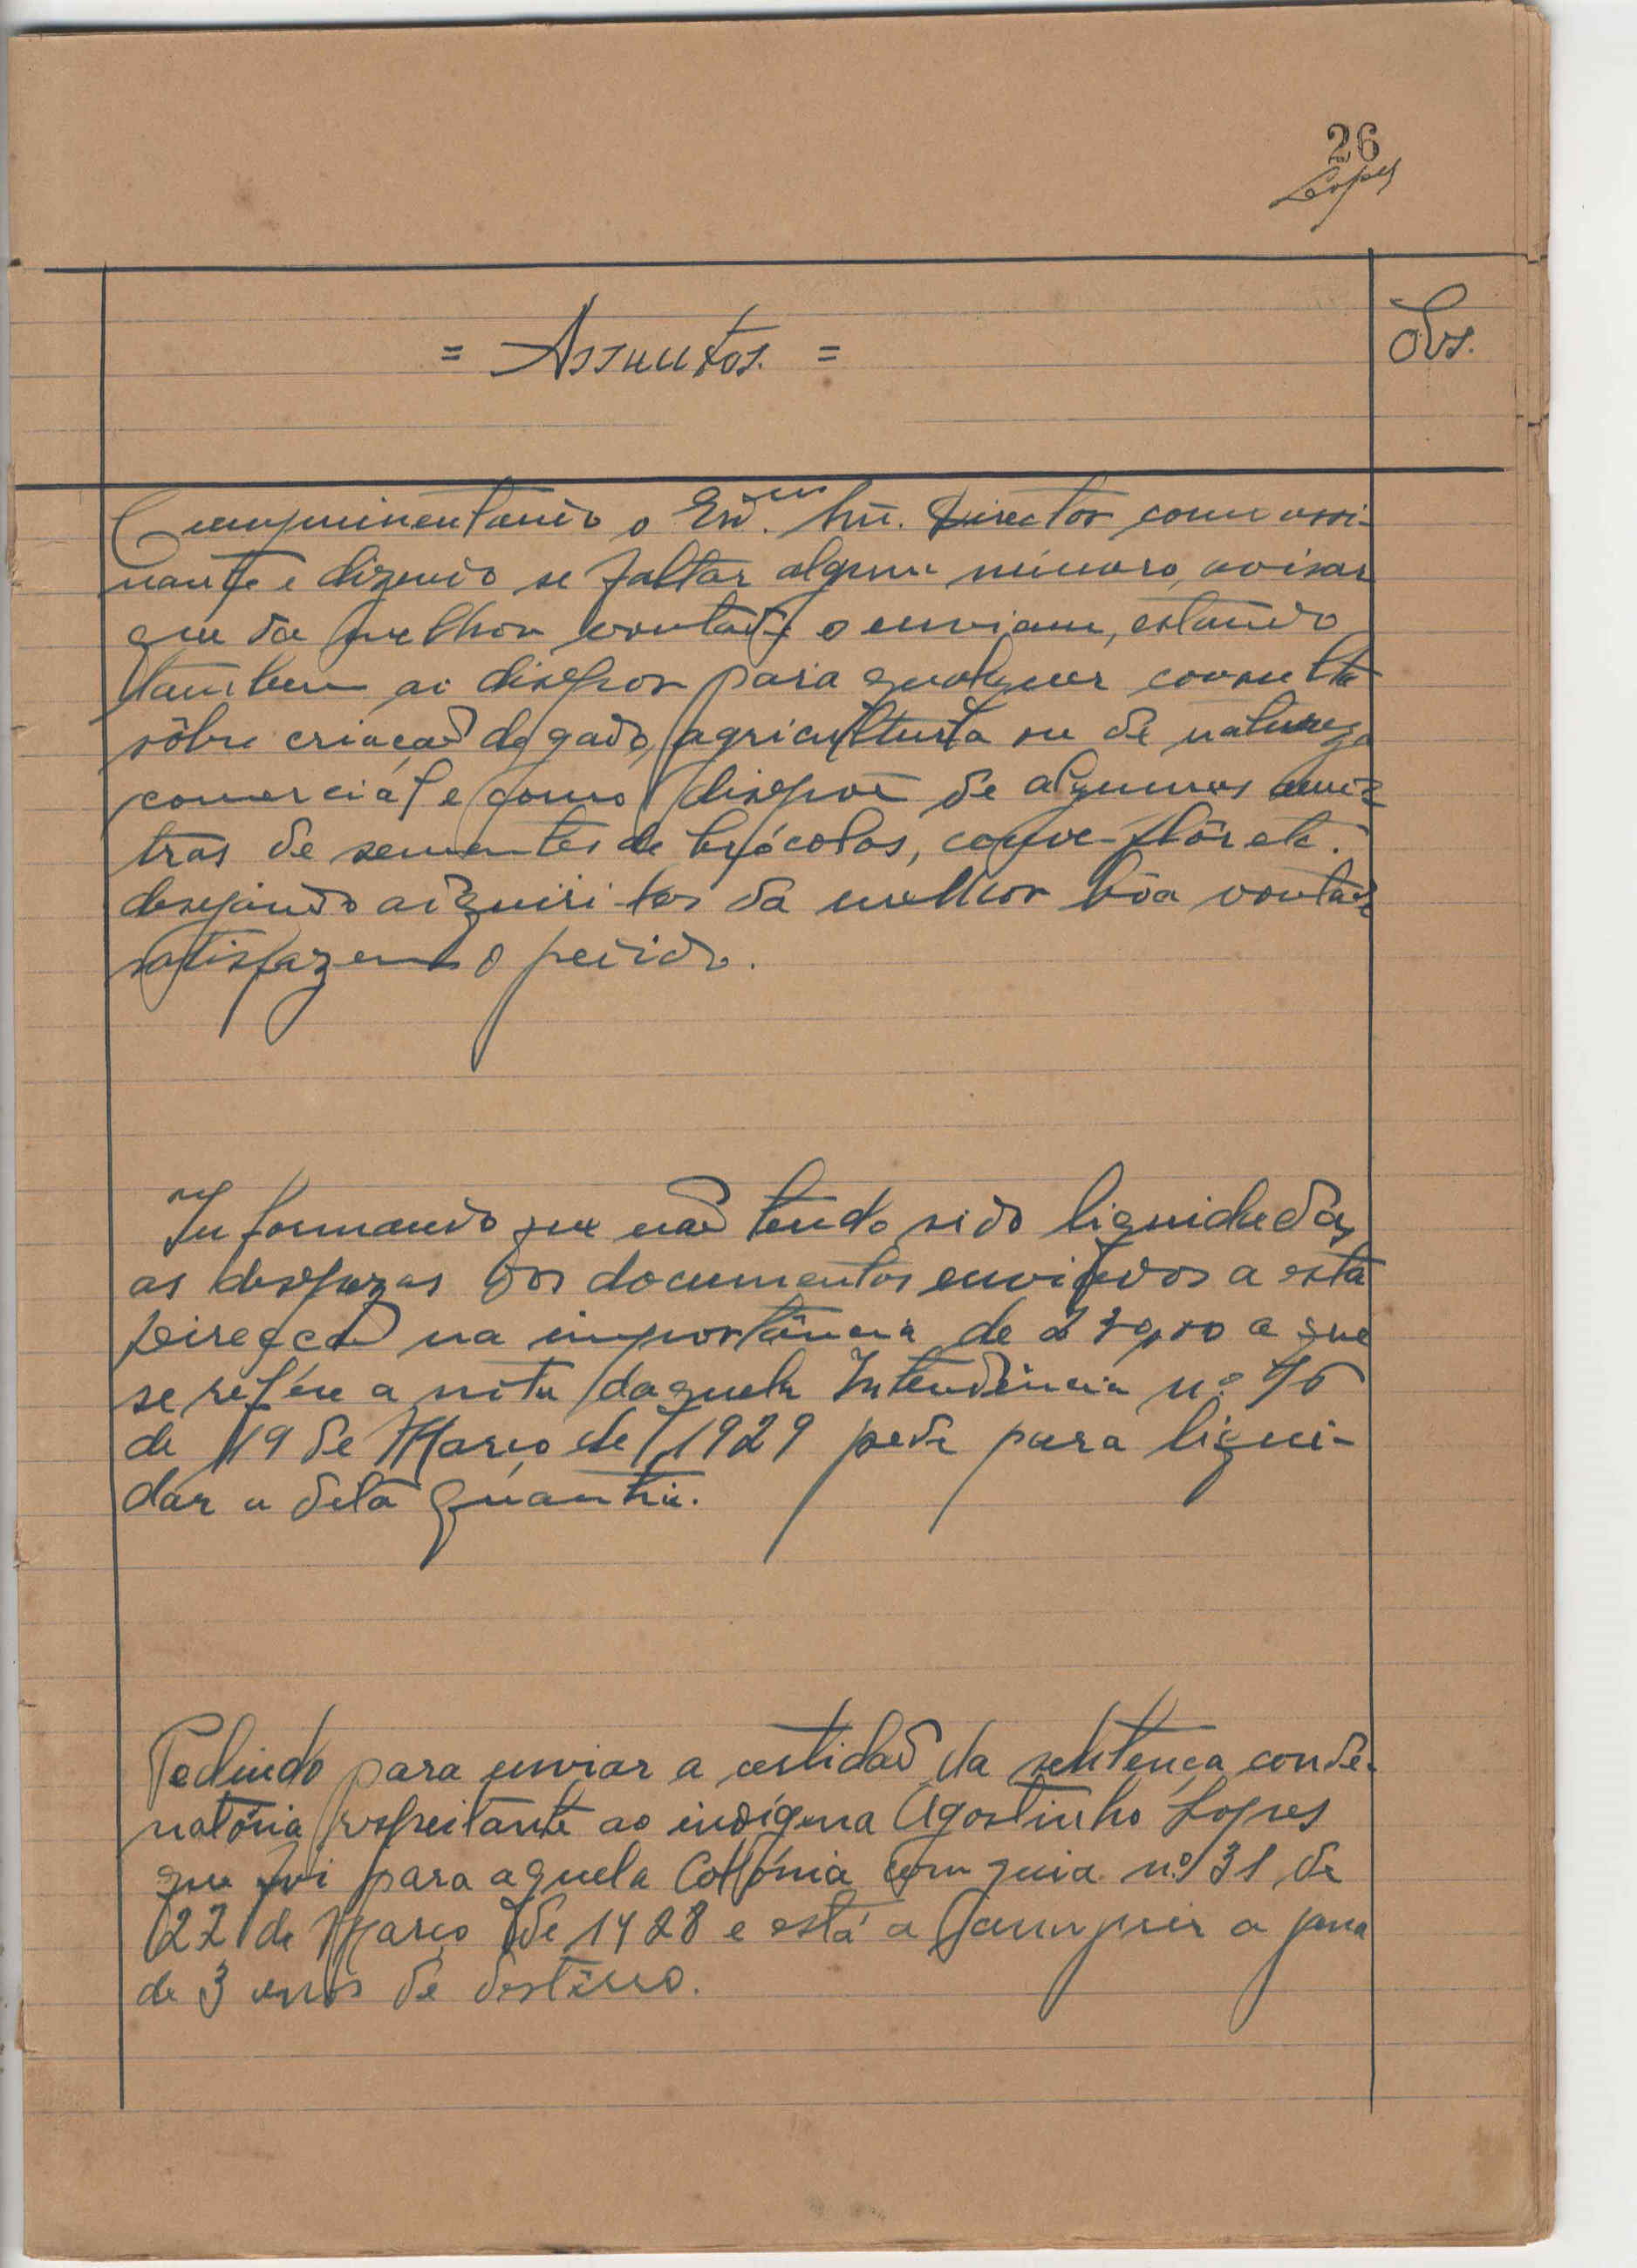 26
Lopes
= Assuntos. =
Obs.
Cumprimentando o Exmº. Snr. Director como assi-
nante e dizendo se faltar algum número, avisar
que da melhor vontade o enviam, estando
tambem ao dispor para qualquer consulta
sôbre criação de gado, agricultura ou de natureza
comerciál e como dispoe de algumas amos-
tras de sementes de brócolos, couve-flôr etc.
desejando adquiri-las da melhor bôa vontade
satisfazem o pedido.
Informando que não tendo sido liquidadas
as despezas dos documentos enviados a esta
Direcção na importância de a que
se refére a nota daquela Intendência nº
de 19 de Março de 1929 pede para liqui-
dar a dita quantia.
Pedindo para enviar a certidão da sentença conde-
natória respeitante ao indígena Agostinho Lopes
que foi para aquela Colónia com guia nº 31 de
22 de Março de 1928 e está a cumprir a pena
de 3 anos de destêrro.